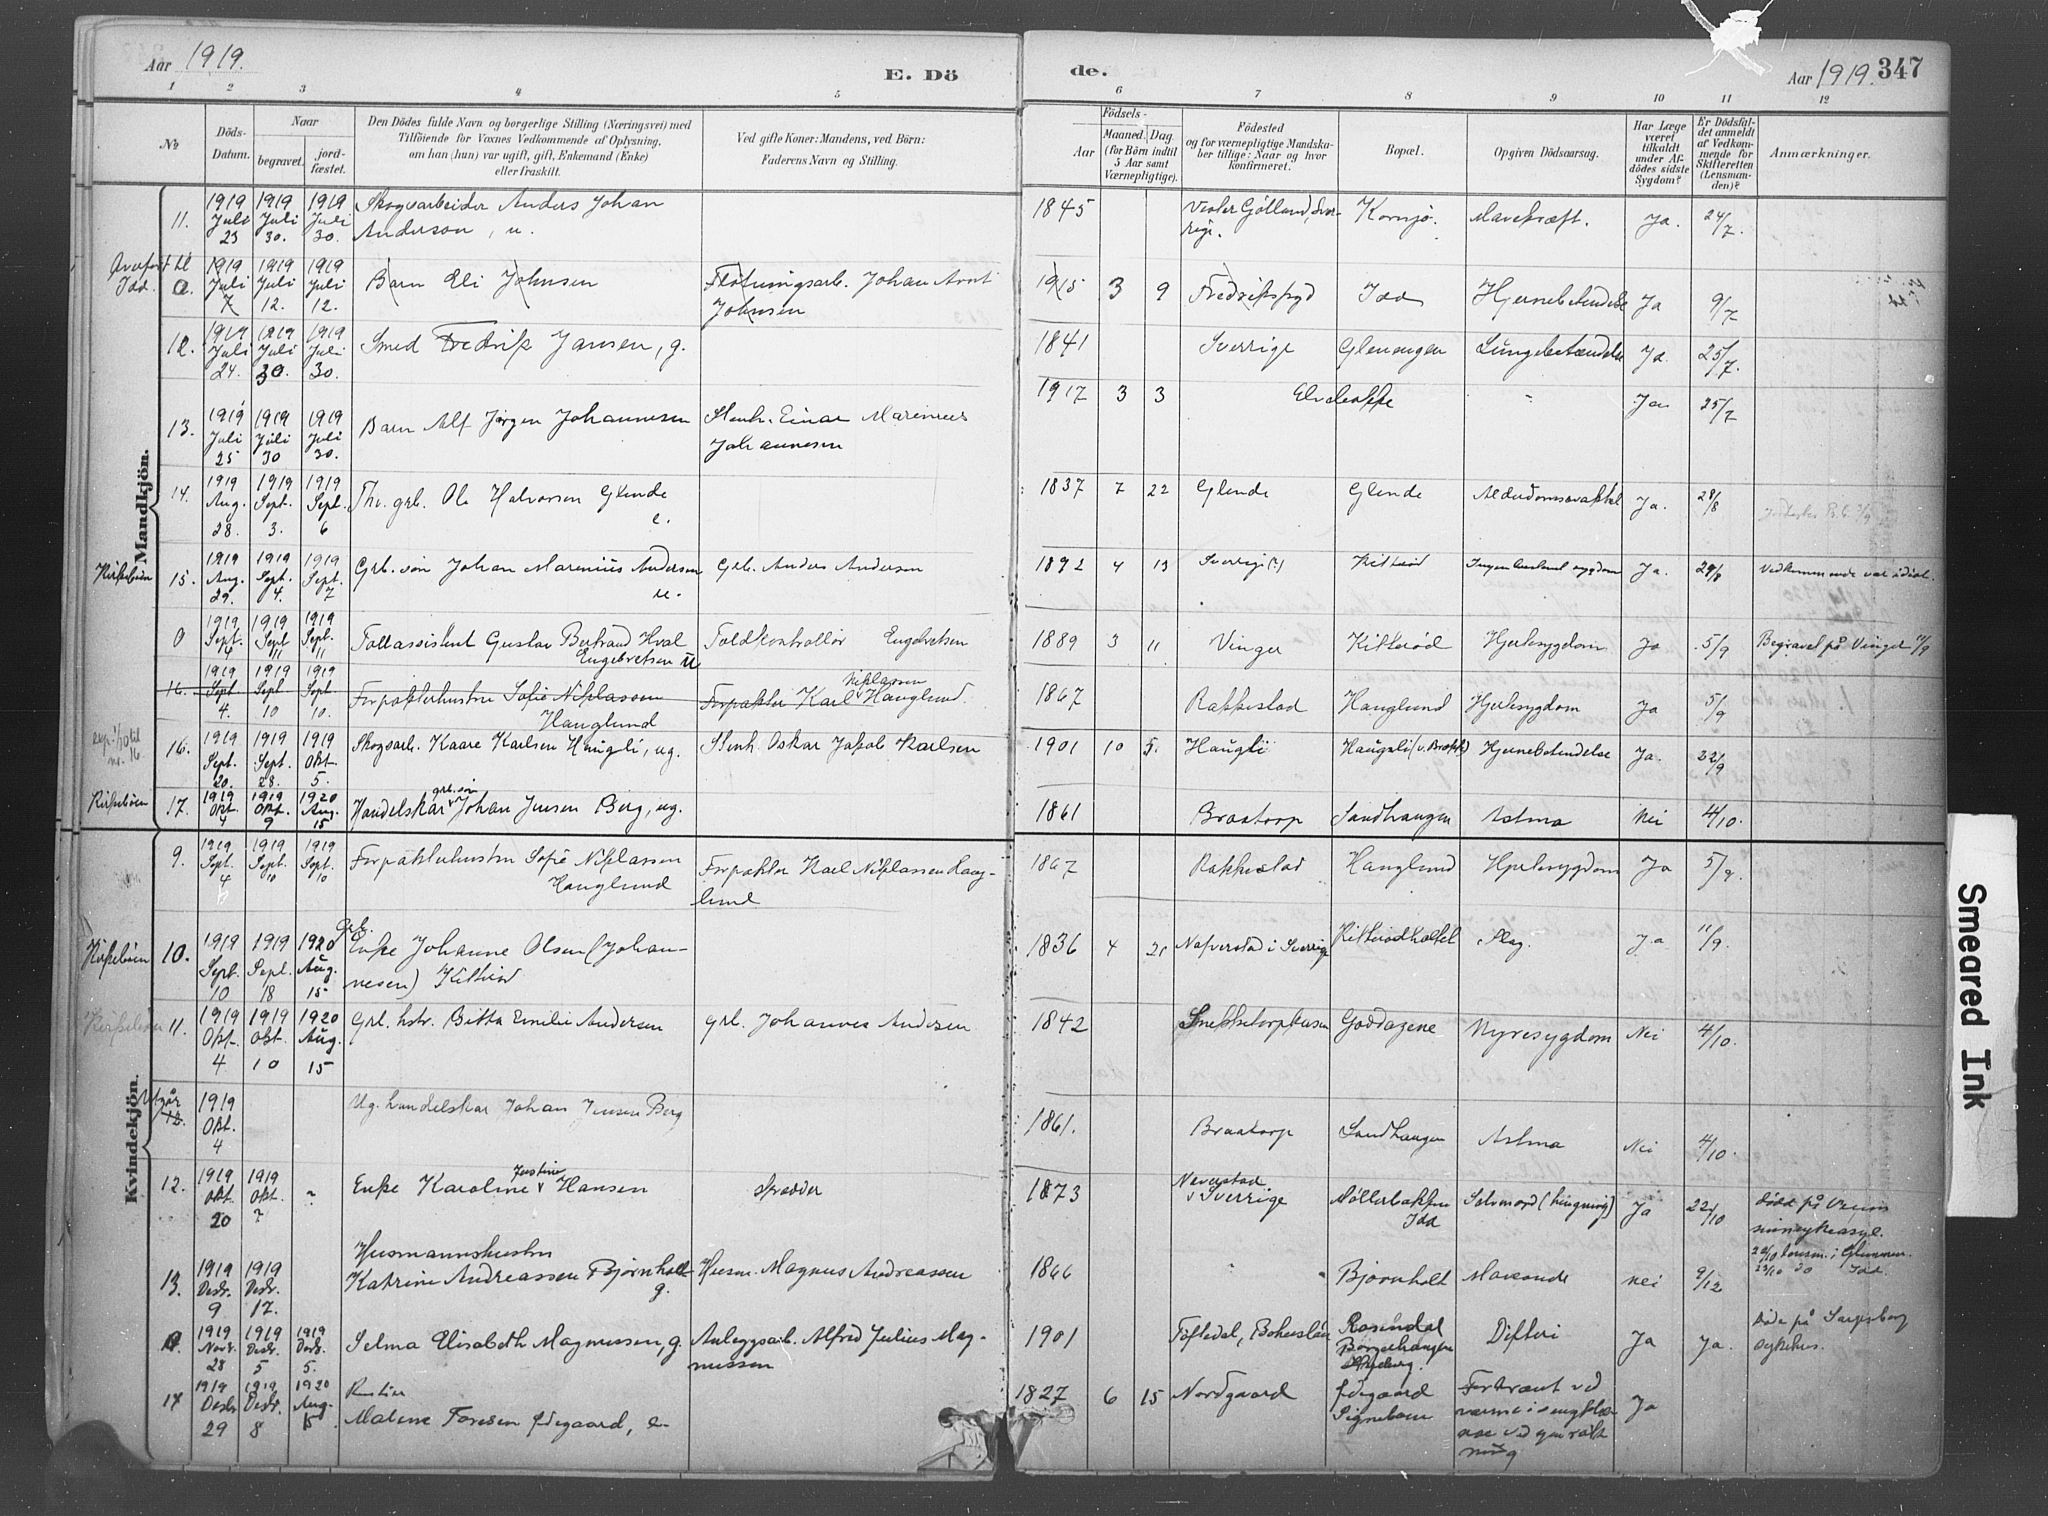 Aar 1919.
E. Dö
de.
Aar 1919. 347
1 2 3 4 5 6 7 8 9 10 11 12
№
Döds-
Datum.
Naar
begravet.
jord-
fæstet.
Den Dödes fulde Navn og borgerlige Stilling (Næringsvei) med
Tilföiende for Voxnes Vedkommende af Oplysning,
om han (hun) var ugift, gift, Enkemand (Enke)
eller fraskilt.
Ved gifte Koner: Mandens, ved Börn:
Faderens Navn og Stilling.
Födsels-
Aar
Maaned.
Dag.
(for Börn indtil
5 Aar samt
Værnepligtige).
Födested
og for værnepligtige Mandska-
ber tillige: Naar og hvor
konfirmeret.
Bopæl.
Opgiven Dödsaarsag.
Har Læge
været
tilkaldt
under Af-
dödes sidste
Sygdom?
Er Dödsfal-
det anmeldt
af Vedkom-
mende for
Skifteretten
(Lensman-
den)?
Anmærkninger.
Mandkjön.
11. 1919 Juli 23 1919 Juli 30. 1919 Juli 30. Skogsarbeider Anders Johan 1845 Vester Götland, Sver- Kornsjø. Mavekræft. Ja. 24/7.
Anderson, u. rige.
Idd. 1919 Juli 7 1919 Juli 12. 1919 Juli 12. Barn Eli Johnsen Fløtningsarb. Johan Arnt 1915 3 9 Idd Hjernebetendelse Ja 9/7
Johnsen
12. 1919 Juli 24. 1919 Juli 30. 1919 Juli 30. Smed Fredrik Jansen, g. 1841 Sverrige Glenengen Lungebetændelse Ja 25/7.
13. 1919 Juli 25 1919 Juli 30 1919 Juli 30. Barn Alf Jørgen Johannesen Stenh. Einar Marinius 1917 3 3 Ja 25/7
Johannesen
14. 1919 Aug. 28. 1919 Sept. 3. 1919 Sept. 6 Ole Halvorsen Glende 1837 7 22 Glende Glende Ja. 28/8
e.
Kirkebøen 15. 1919 Aug. 29. 1919 Sept. 4. 1919 Sept. 7 Grb. søn Johan Marenius Andersen Grb. Anders Andersen 1892 4 13 Sverrige (?) Kitterød Ja. 29/8 Vedkommende var idiot.
u.
0 1919 Sept. 4 1919 Sept 11 1919 Sept. 11 Tollassistent Gustav Bertrand Hval Toldkontrollør Engebretsen 1889 3 11 Vinger Kitterød Hjertesygdom Ja 5/9 Begravet på Vinger 11/9
Engebretsen u
16. 1919 Sept 4. 1919 Sept 10 1919 Sept 10. Forpakterhustru Sofie Niklassen Forpakter Karl Niklassen Hauglund. 1867 Rakkestad Hauglund Hjertesygdom Ja 5/9
Hauglund
16. 1919 Sept. 20. 1919 Sept. 28. 1919 Okt 5. Skogsarb. Kaare Karlsen Haugli, ug. Stenh. Oskar Jakob Karlsen 1901 10 5. Haugli Hjernebetendelse Ja. 22/9
Kirkebøen 17. 1919 Okt. 4 1919 Okt. 9 1920 Aug. 15 Handelskar grb. søn Johan Jensen Berg, ug. 1861 Braatorp Sandhaugen Astma Nei 4/10.
Kvindekjön.
9. 1919 Sept. 4 1919 Sept. 10 1919 Sept. 10 Forpakterhustru Sofie Niklassen Forpakter Karl Niklassen Haug- 1867 Rakkestad Hauglund Hjertesygdom Ja 5/9.
Hauglund lund
Kirkebøen 10. 1919 Sept. 10 1919 Sept. 18 1920 Aug. 15 Grb. Enke Johanne Olsen (Johan- 1836 4 Naverstad i Sverrige Kitterødholtet Slag. Ja 11/9.
nesen) Kitterød
Kirkebøen 11. 1919 Okt. 4 1919 Okt. 10 1920 Aug. 15 Grb. hstr. Britta Emilie Andersen grb. Johannes Andersen 1842 Goddagene Nyresygdom Nei 4/10.
Utgår 12. 1919 Okt. 4 Ug. handelskar Johan Jensen Berg 1861. Braatorp Sandhaugen Astma Nei 4/10.
12. 1919 Okt. 20 1919 Okt. ? Enke Karoline Justine Hansen skrædder 1873 Naverstad Sverrige Møllerbakken Idd Selvmord (hængning) Ja 22/10 død på Veums
sinnsykeasyl.
22/10 lensm. i Glemmen.
23/10 do Idd.
13. 1919 Desbr. 9 1919 Desbr. 17. Husmannshustru
Katrine Andreassen Bjørnholt g. Husm. Magnus Andreassen 1866 " " Bjørnholt Mavesaude nei 9/12
1919 Novbr. 28 1919 Desbr. 5 1919 Desbr. 5. Selma Elisabeth Magnussen, g. Anleggsarb. Alfred Julius Mag- 1901 Töftedal, Bohuslän Rosendal Difteri Ja Ja. Døde på Sarpsborg
nussen Borgerhaugen sykehus.
14 1919 Desbr 29 1919 Desbr. 8 1920 Aug. 15
Malene Toresen Ødegaard, e. 1827 6 15 Nordgaard Ødegaard Signebøen Ja
Smeared Ink